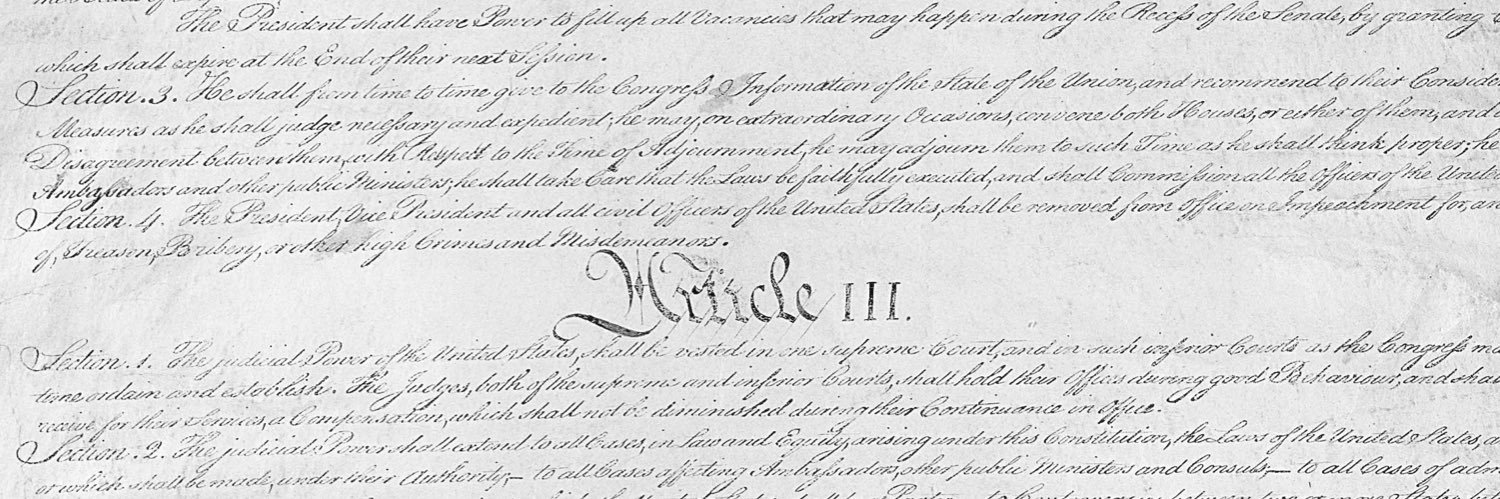 The President shall have Power to fill up all Vacancies that may happen during the Recess of the Senate, by granting
which shall expire at the End of their next Session.
Section. 3. He shall from time to time give to the Congress Information of the State of the Union, and recommend to their Conside
Measures as he shall judge necessary and expedient; he may, on extraordinary Occasions, convene both Houses, or either of them, and
Disagreement between them, with Respect to the Time of Adjournment, he may adjourn them to such Time as he shall think proper; he
Ambassadors and other public Ministers; he shall take Care that the Laws be faithfully executed, and shall Commission all the Officers of the United
Section. 4. The President, Vice President and all civil Officers of the United States, shall be removed from Office on Impeachment for, an
of, Treason, Bribery, or other high Crimes and Misdemeanors.
Article III.
Section. 1. The judicial Power of the United States, shall be vested in one supreme Court, and in such inferior Courts as the Congress ma
time ordain and establish. The Judges, both of the supreme and inferior Courts, shall hold their Offices during good Behaviour, and shal
receive for their Services, a Compensation, which shall not be diminished during their Continuance in Office.
Section. 2. The judicial Power shall extend to all Cases, in Law and Equity, arising under this Constitution, the Laws of the United States, a
or which shall be made, under their Authority;— to all Cases affecting Ambassadors, other public Ministers and Consuls;— to all Cases of adm